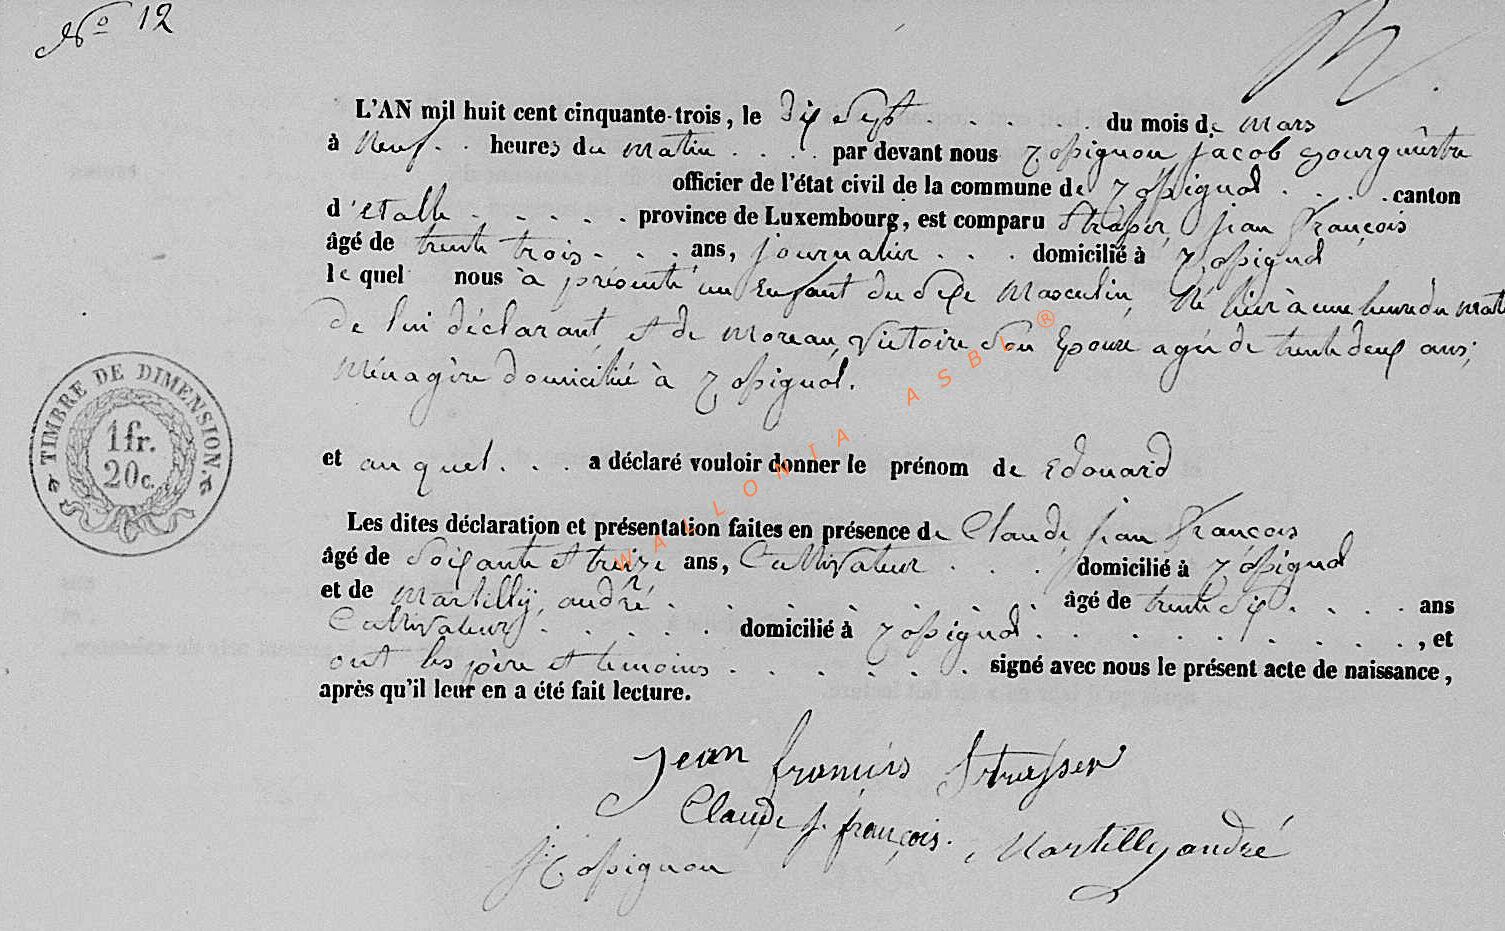 No 12
L'AN mil huit cent cinquante-trois, le Dix Sept du mois de Mars
à Neuf heures du matin par devant nous jacob Bourguemestre
officier de l'état civil de la commune de Rossignol canton
d'Etalle province de Luxembourg, est comparu Strasser, jean françois
âgé de trente trois ans, journalier domicilié à Rossignol
le quel nous à présenté un Enfant du Sexe Masculin, Né hier à une heure du mat
De lui déclarant, et de Moreau, Victoire Son Epouse agée de trente deux ans;
Ménagère domiciliée à Rossignol.
et au quel a déclaré vouloir donner le prénom de Edouard
Les dites déclaration et présentation faites en présence de Claude, jean françois
âgé de Soixante et treize ans, Cultivateur domicilié à Rossignol
et de Martilly, andré âgé de trente Six ans
Cultivateurs domicilié à Rossignol , et
ont les père et temoins signé avec nous le présent acte de naissance,
après qu'il leur en a été fait lecture.
TIMBRE DE DIMENSION.
1 fr.
20 c.
jean francois Strasser
Claude j. françois. Martilly andré
WALLONIA ASBL ®